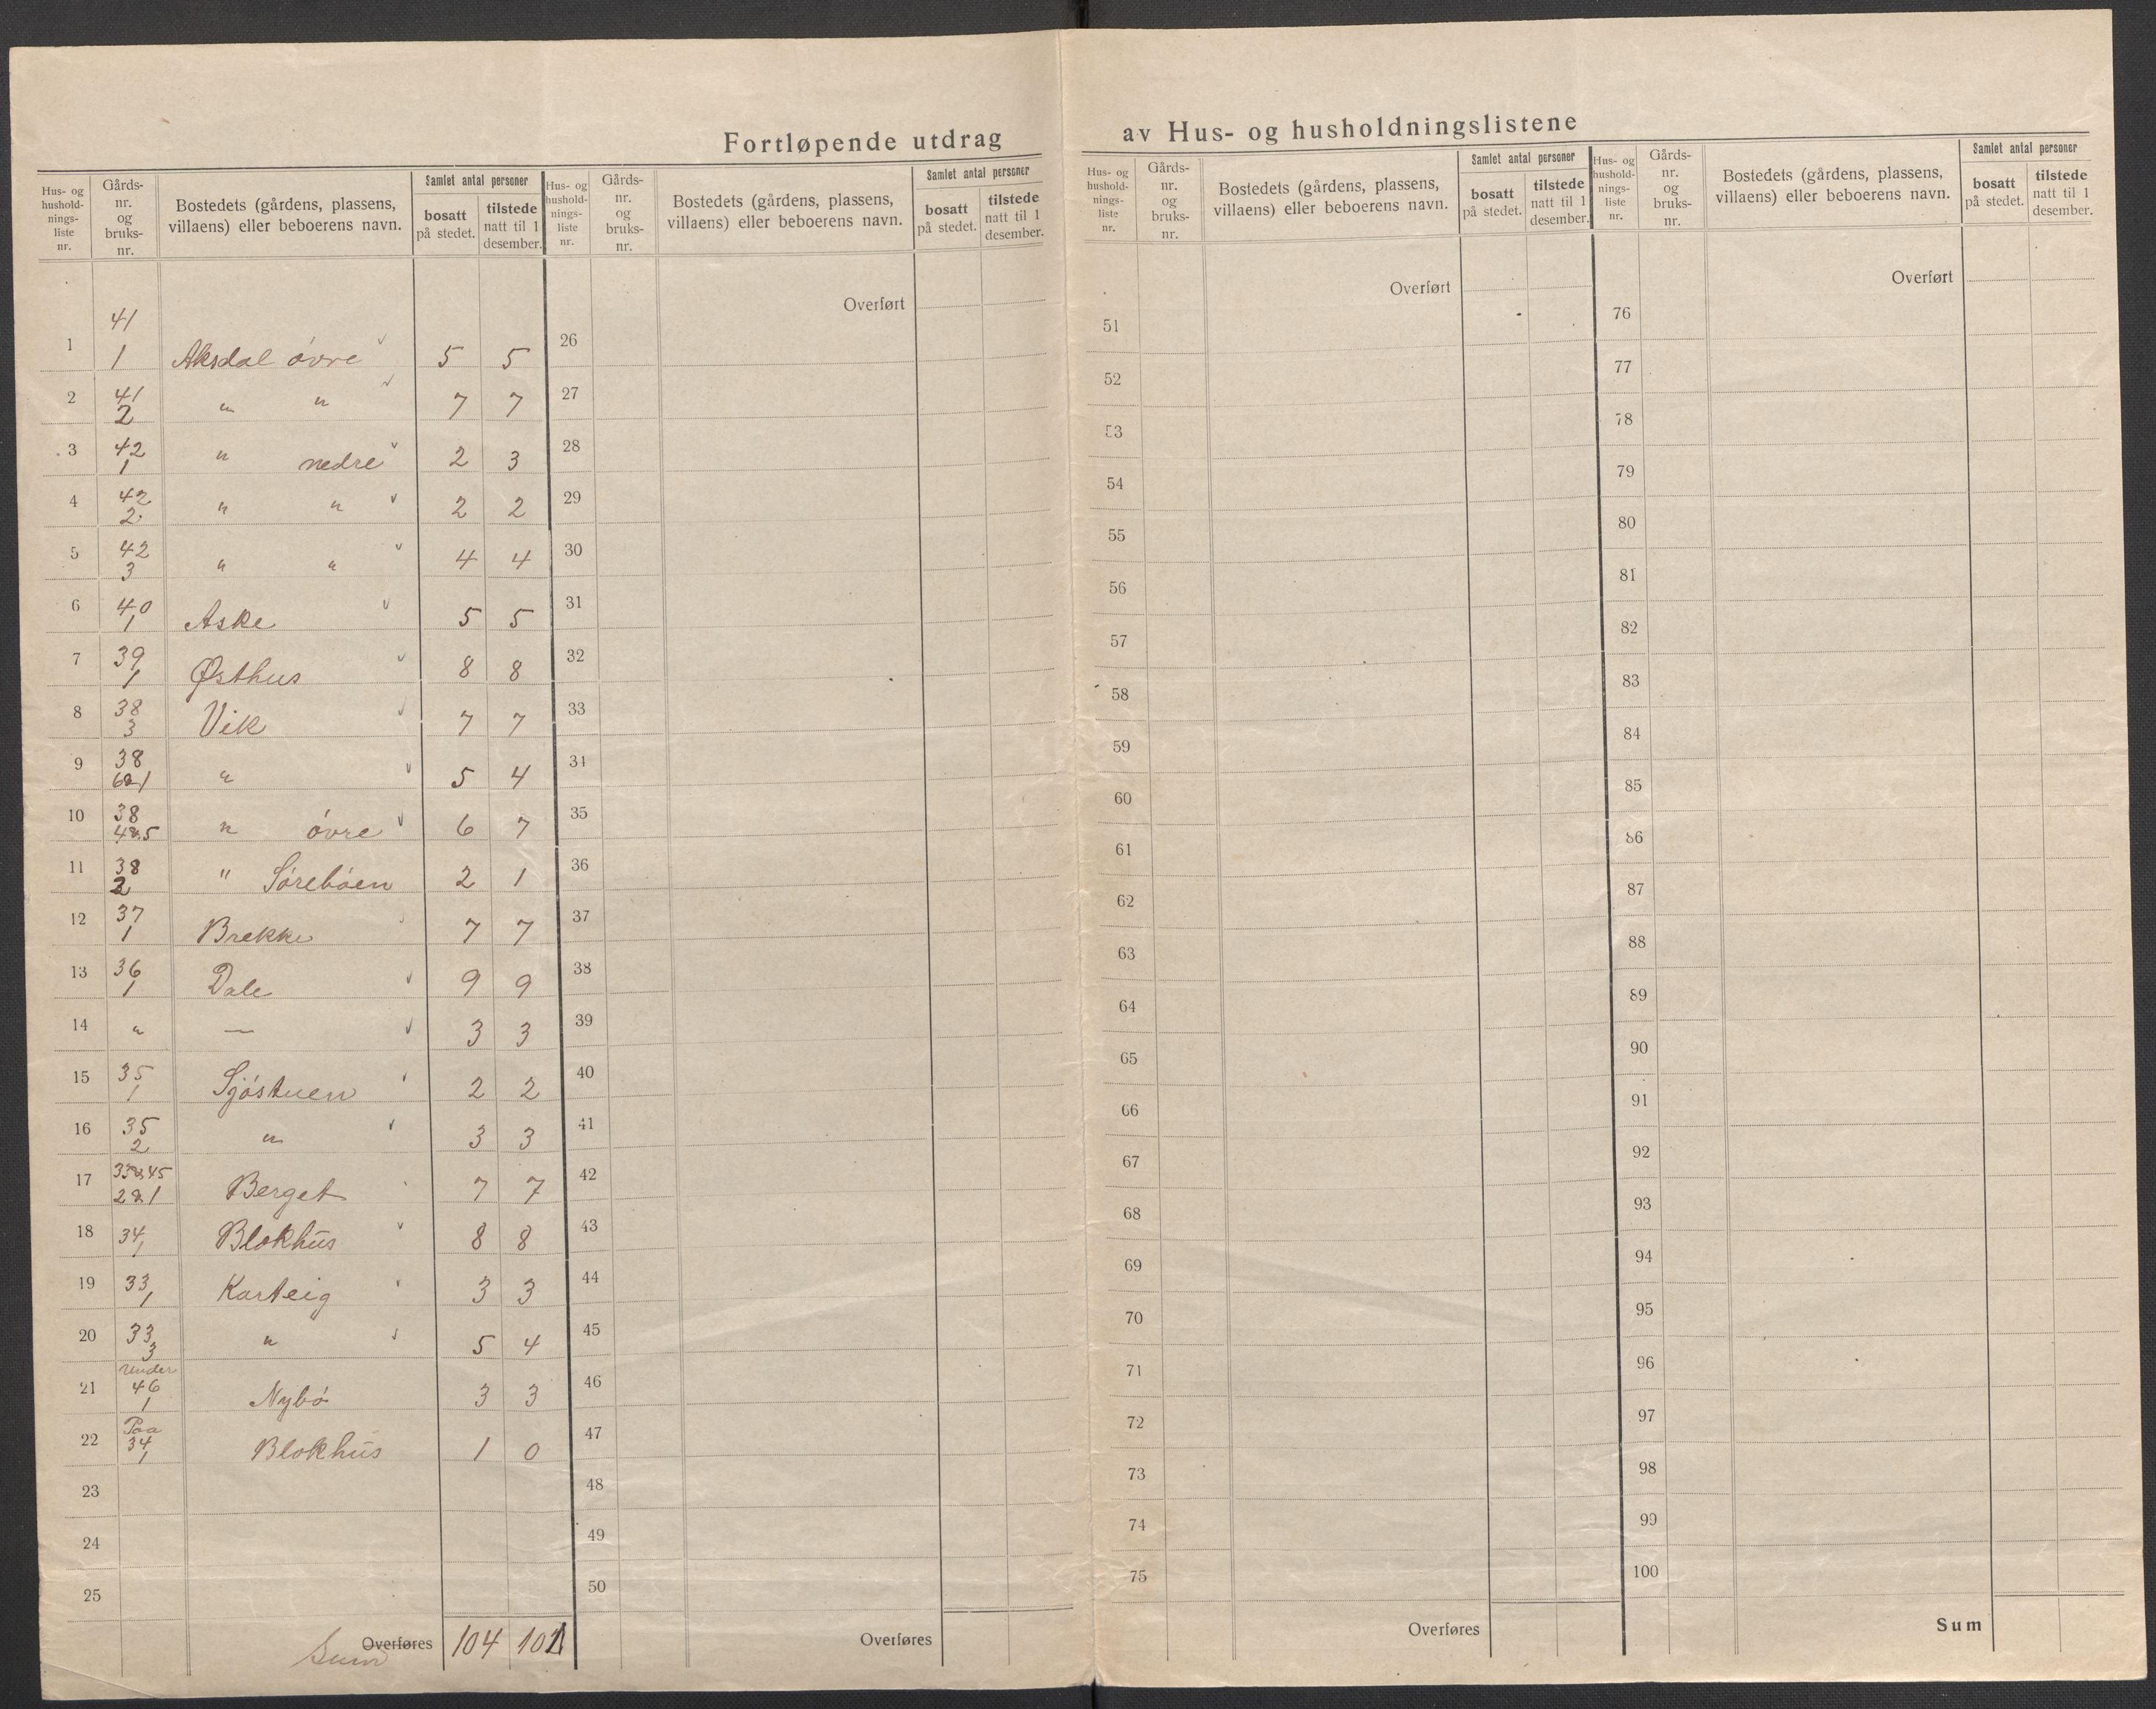 Fortløpende utdrag av Hus- og husholdningslistene
Hus- og hushold-nings-liste nr. Gårds-nr. og bruks-nr. Bostedets (gårdens, plassens, villaens) eller beboerens navn. Samlet antal personer bosatt på stedet. tilstede natt til 1 desember.
Hus- og hushold-nings-liste nr. Gårds-nr. og bruks-nr. Bostedets (gårdens, plassens, villaens) eller beboerens navn. Samlet antal personer bosatt på stedet. tilstede natt til 1 desember.
Hus- og hushold-nings-liste nr. Gårds-nr. og bruks-nr. Bostedets (gårdens, plassens, villaens) eller beboerens navn. Samlet antal personer bosatt på stedet. tilstede natt til 1 desember.
Hus- og hushold-nings-liste nr. Gårds-nr. og bruks-nr. Bostedets (gårdens, plassens, villaens) eller beboerens navn. Samlet antal personer bosatt på stedet. tilstede natt til 1 desember.
1 41 1 Aksdal övre 5 5
2 41 2 " " 7 7
3 42 1 " nedre 2 3
4 42 2 " " 2 2
5 42 3 " " 4 4
6 40 1 Aske 5 5
7 39 1 Østhus 8 8
8 38 3 Vik 7 7
9 38 6&1 " 5 4
10 38 4&5 " övre 6 7
11 38 2 " Söreböen 2 1
12 37 1 Brekke 7 7
13 36 1 Dale 9 9
14 " — 3 3
15 35 1 Sjöstuen 2 2
16 35 2 " 3 3
17 33&45 2&1 Berget 7 7
18 34 1 Blokhus 8 8
19 33 1 Karteig 3 3
20 33 3 " 5 4
21 under 46 1 Nybö 3 3
22 Paa 34 1 Blokhus 1 0
23
24
25
Overføres Sum 104 102
Overført
26
27
28
29
30
31
32
33
34
35
36
37
38
39
40
41
42
43
44
45
46
47
48
49
50
Overføres
Overført
51
52
53
54
55
56
57
58
59
60
61
62
63
64
65
66
67
68
69
70
71
72
73
74
75
Overføres
Overført
76
77
78
79
80
81
82
83
84
85
86
87
88
89
90
91
92
93
94
95
96
97
98
99
100
Sum